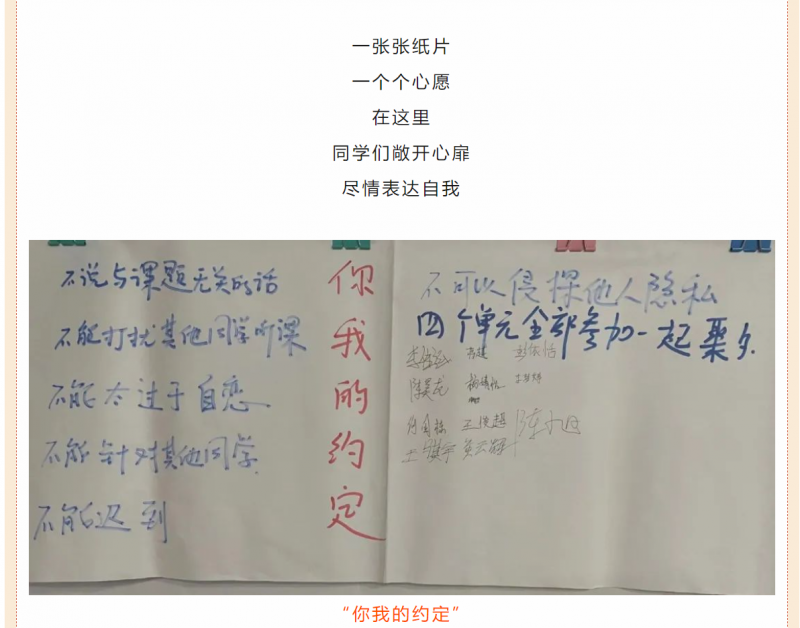 一张张纸片
一个个心愿
在这里
同学们敞开心扉
尽情表达自我
不说与课题无关的话
不能打扰其他同学听课
不能太过于自恋
不能针对其他同学
不能迟到
你我的约定
不可以侵探他人隐私
四个单元全部参加一起聚多
"你我的约定"